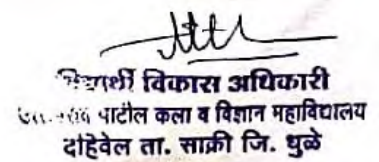 विद्यार्थी विकास अधिकारी
पाटील कला व विज्ञान महाविद्यालय
दहिवेल ता. साक्री जि. धुळे